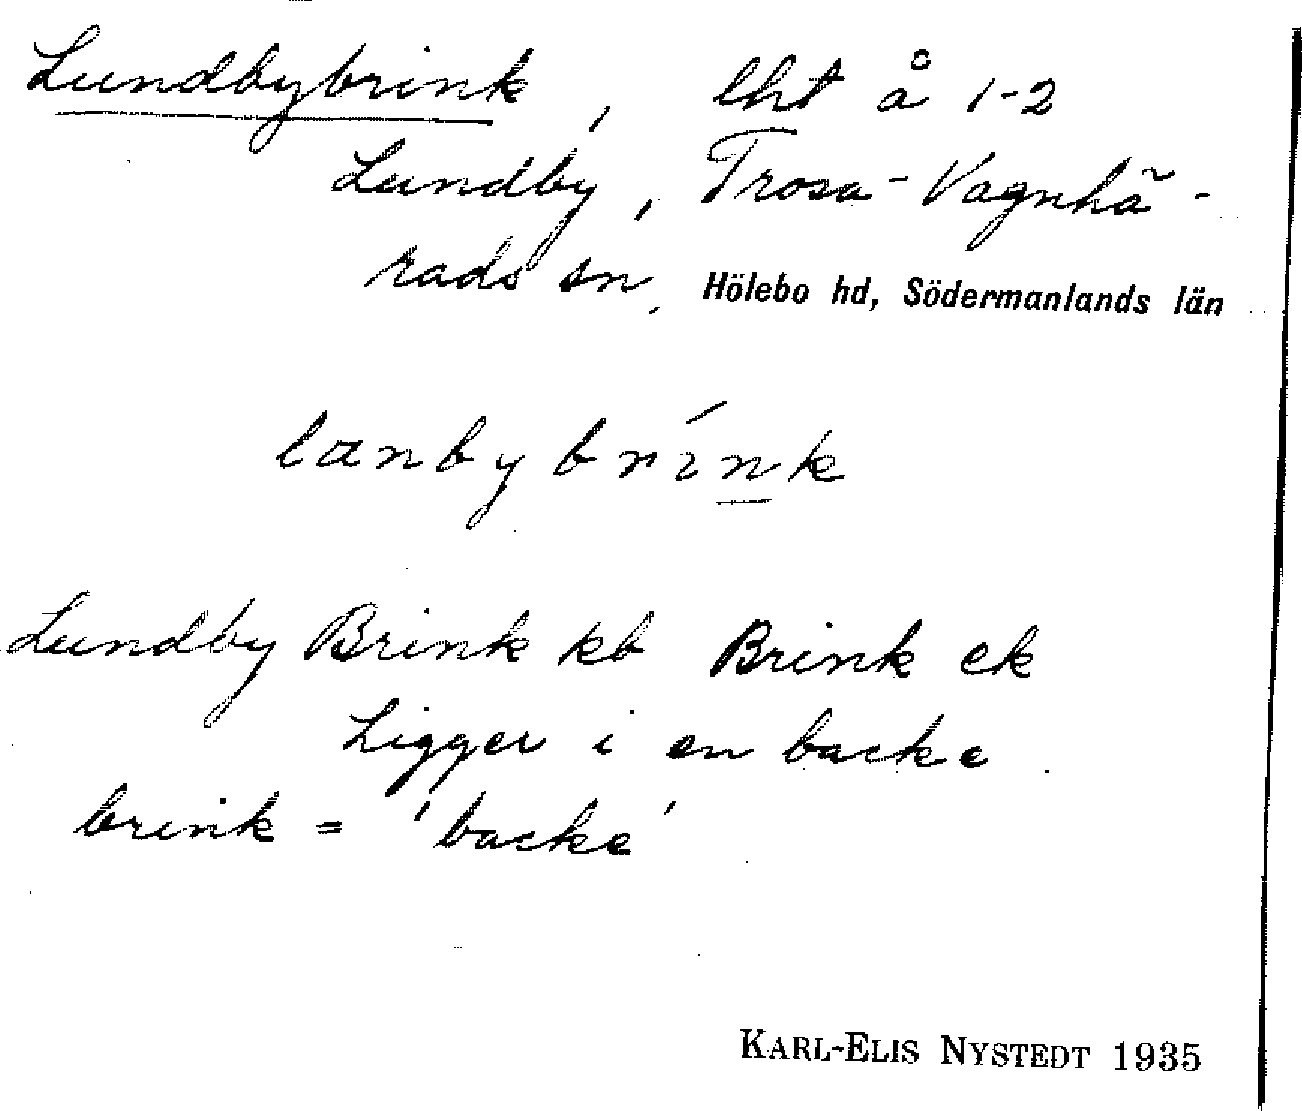 Lundbybrink, lht å 1-2
Lundby, Trosa-Vagnhä-
rads sn, Hölebo hd, Södermanlands län
lanbybrínk
Lundby Brink kb Brink ek
Ligger i en backe
brink = 'backe'
KARL-ELIS NYSTEDT 1935